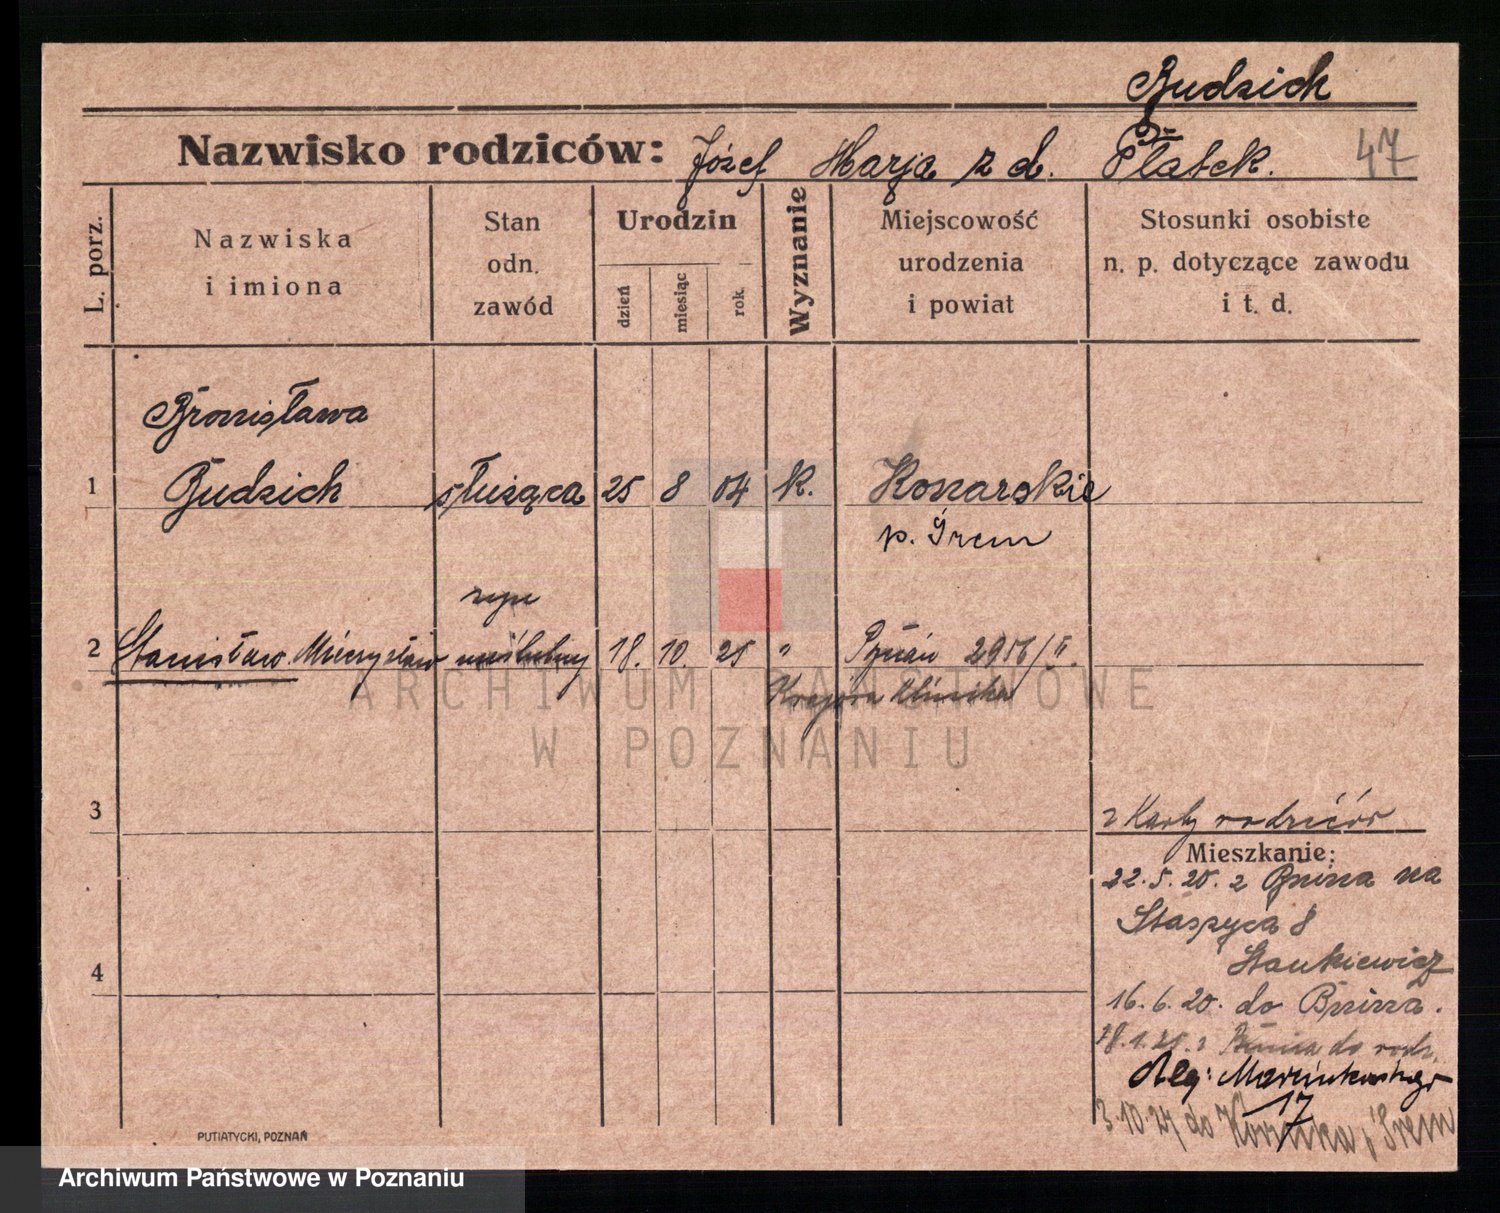 Budzich
Nazwisko rodziców: Józef Marja z d. Płatek. 47
L. porz.
Nazwiska
i imiona
Stan
odn.
zawód
Urodzin
dzień
miesiąc
rok.
Wyznanie
Miejscowość
urodzenia
i powiat
Stosunki osobiste
n. p. dotyczące zawodu
i t. d.
Bronisława
1 Budzich służąca 25 8 04 k. Konarskie
p. Śrem
syn
2 Stanisław Mieczysław nieślubny 18. 10. 25 " Poznań 2956/II.
3
z Karty rodziców
Mieszkanie:
22.5.20. z Bnina na
Staszyca 8
Stankiewicz
16.6.20. do Bnina.
28.1.25. z Bnina do rodz.
Alej: Marcinkowskiego
17
3.10.27 do Kórnika, Śrem
4
PUTIATYCKI, POZNAŃ
ARCHIWUM PAŃSTWOWE
W POZNANIU
Archiwum Państwowe w Poznaniu